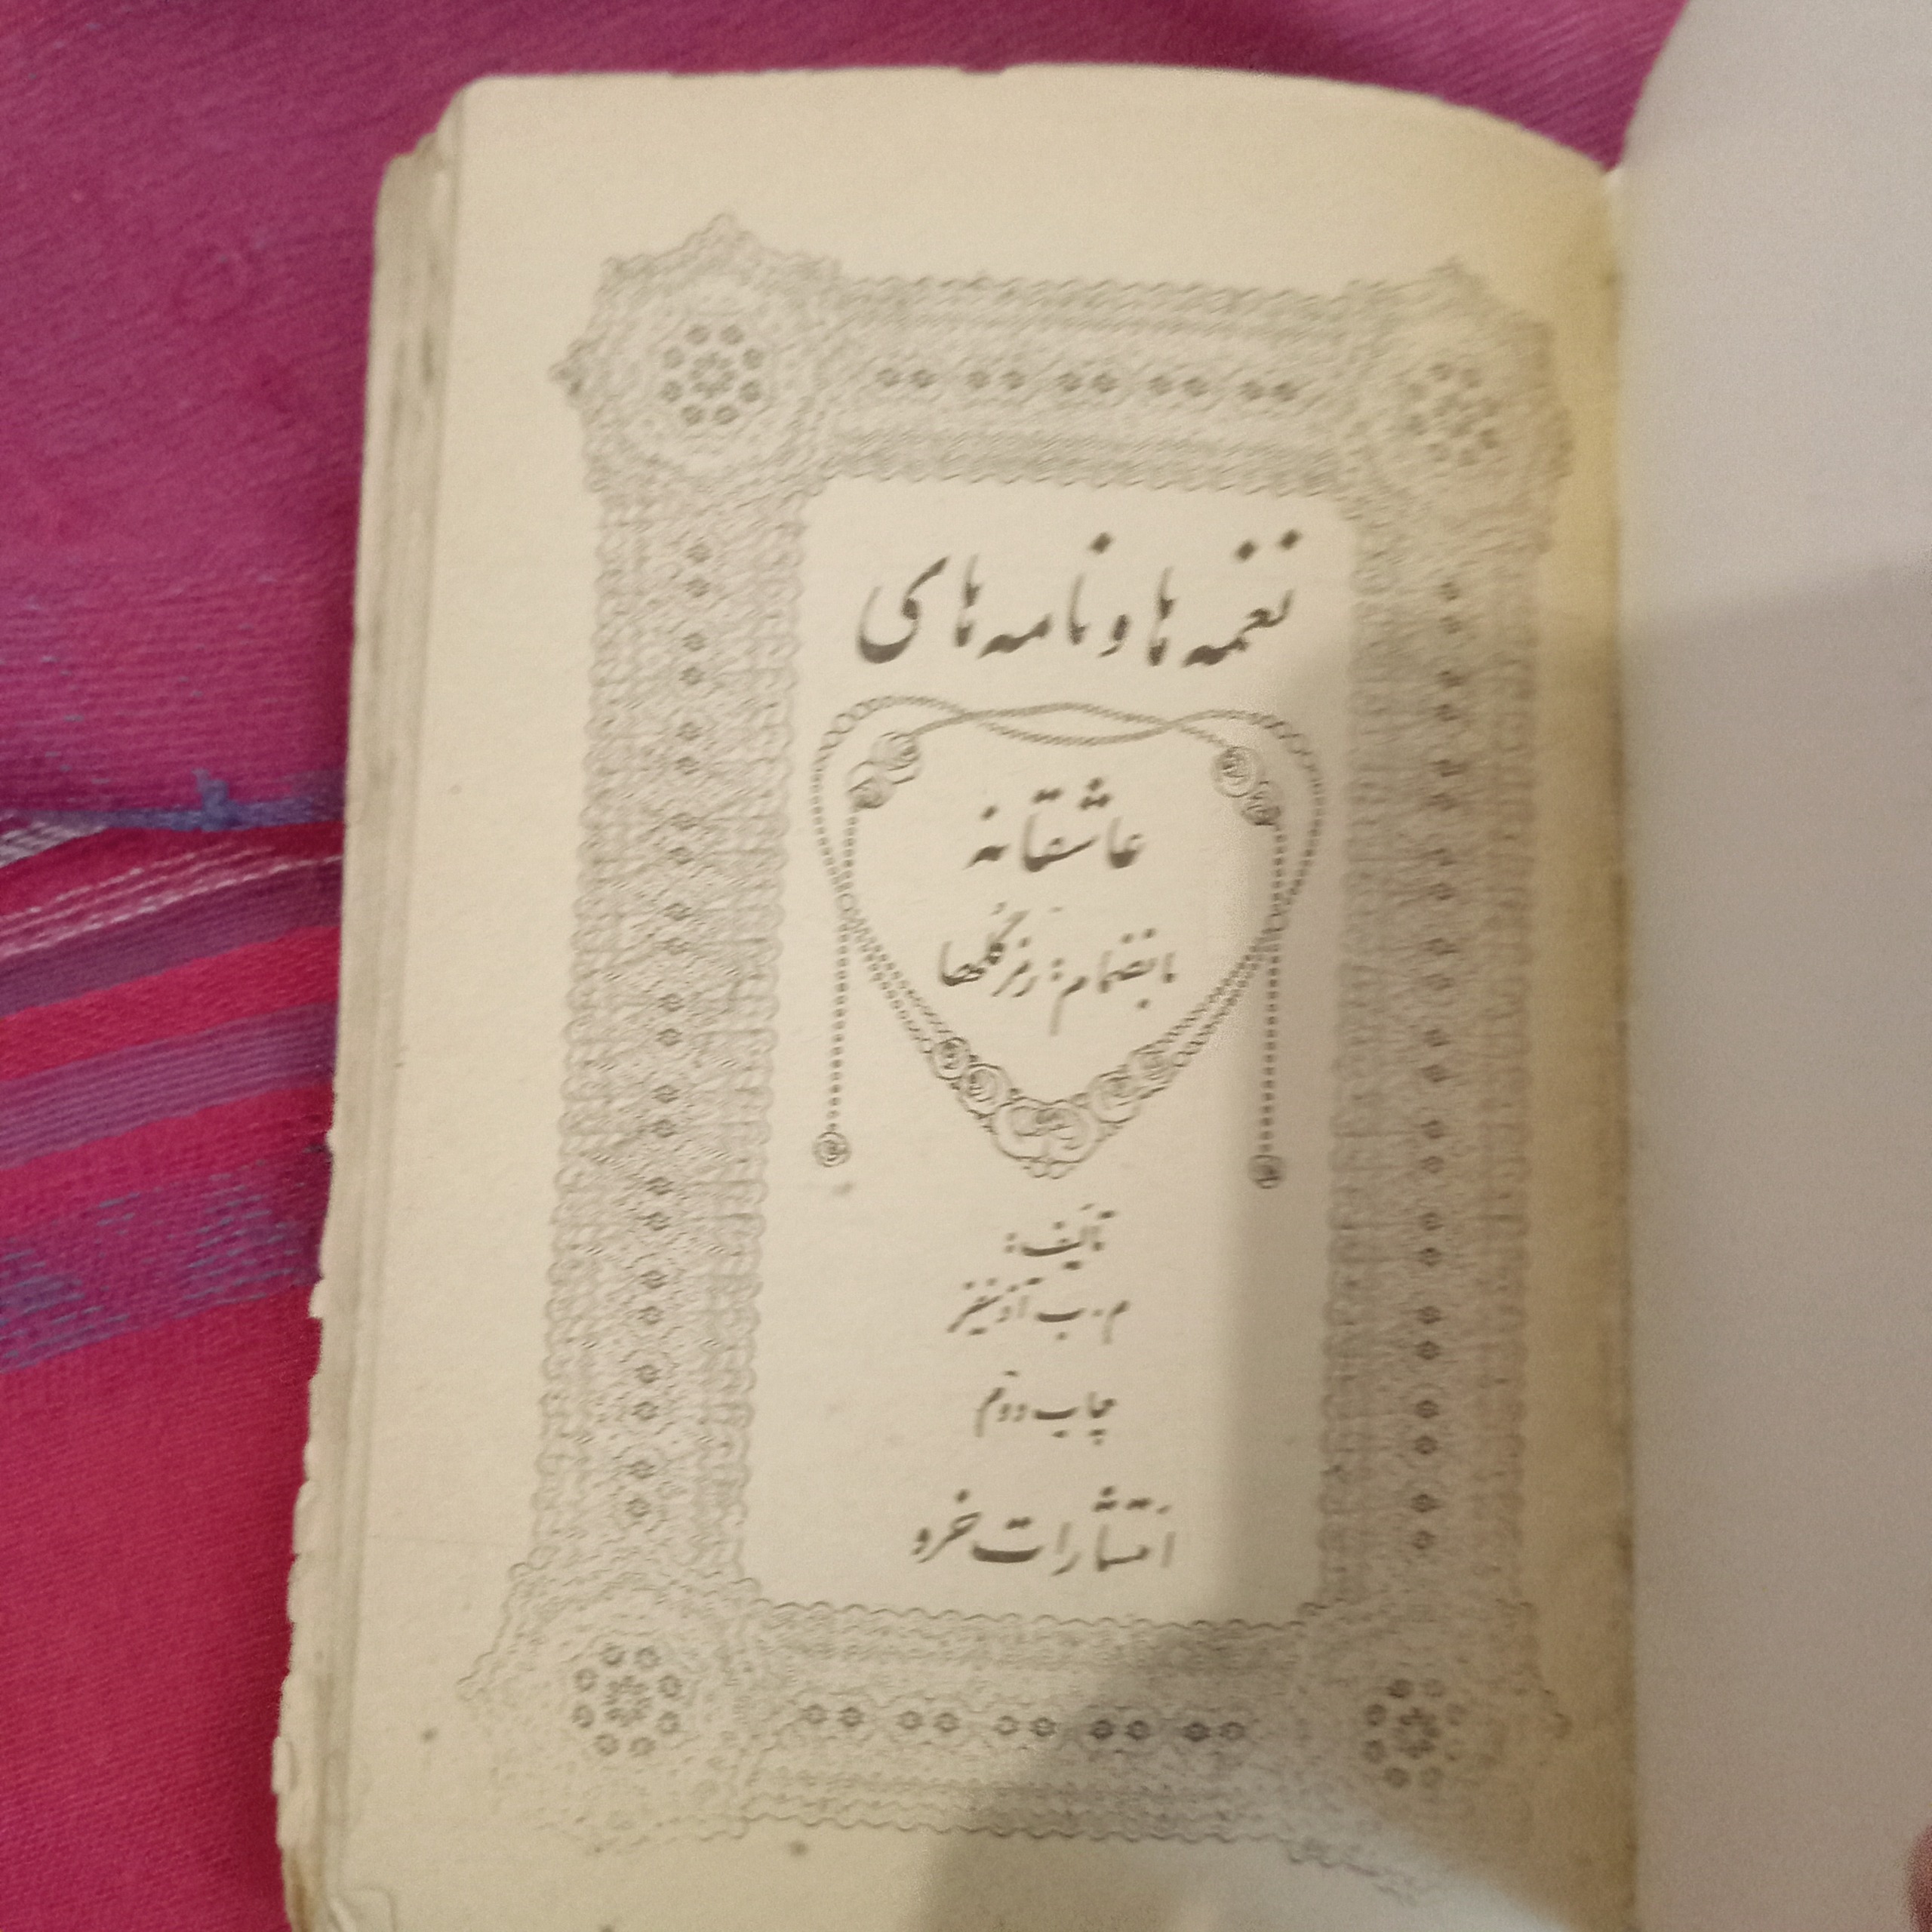 نغمه‌ها و نامه‌های
عاشقانه
بانضمام: رمز گلها
تألیف:
م. ب آذرنیفر
چاپ دوم
انتشارات خرد